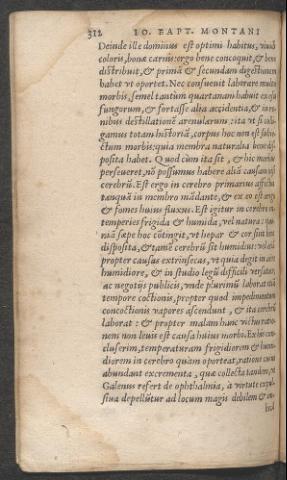 312 IO. BAPT. MONTANI
Deinde ille dominus est optimi habitus, viuidi
coloris, bonæ carnis: ergo bene concoquit, & bene
distribuit, & primā & secundam digestionem
habet vt oportet. Nec consueuit laborare multis
morbis, semel tantùm quartanam habuit ex esu
fungorum, & fortasse alia accidentia, & in re-
nibus destillationē arenularum: ita vt si colli-
gamus totam historiā, corpus hoc non est subie-
ctum morbis: quia membra naturalia bene dis-
posita habet. Quod cùm ita sit, & hic morbus
perseueret, nō possumus habere aliā causam nisi
cerebrū. Est ergo in cerebro primarius affectus
tanquā in membro mādante, & ex eo est origo
& fomes huius fluxus. Est igitur in cerebro in-
temperies frigida & humida, vel natura: nam
sæpe hoc cōtingit, vt hepar & cor sint bene
disposita, & tamē cerebrū sit humidus: vel etiā
propter causas extrinsecas, vt quia degit in aëre
humidiore, & in studio legū difficili versatur,
ac negotijs publicis, vnde plurimū laborat etiā
tempore coctionis, propter quod impedimentum
concoctionis vapores ascendunt, & ita cerebrū
laborat: & propter malam hanc victus ratio-
nem non leuis est causa huius morbi. Ex his con-
cluserim, temperaturam frigidiorem & humi-
diorem in cerebro quàm oporteat, ratione cuius
abundant excrementa, quæ collecta tandem, vt
Galenus refert de ophthalmia, à virtute expul-
siua depellūtur ad locum magis debilem & im-